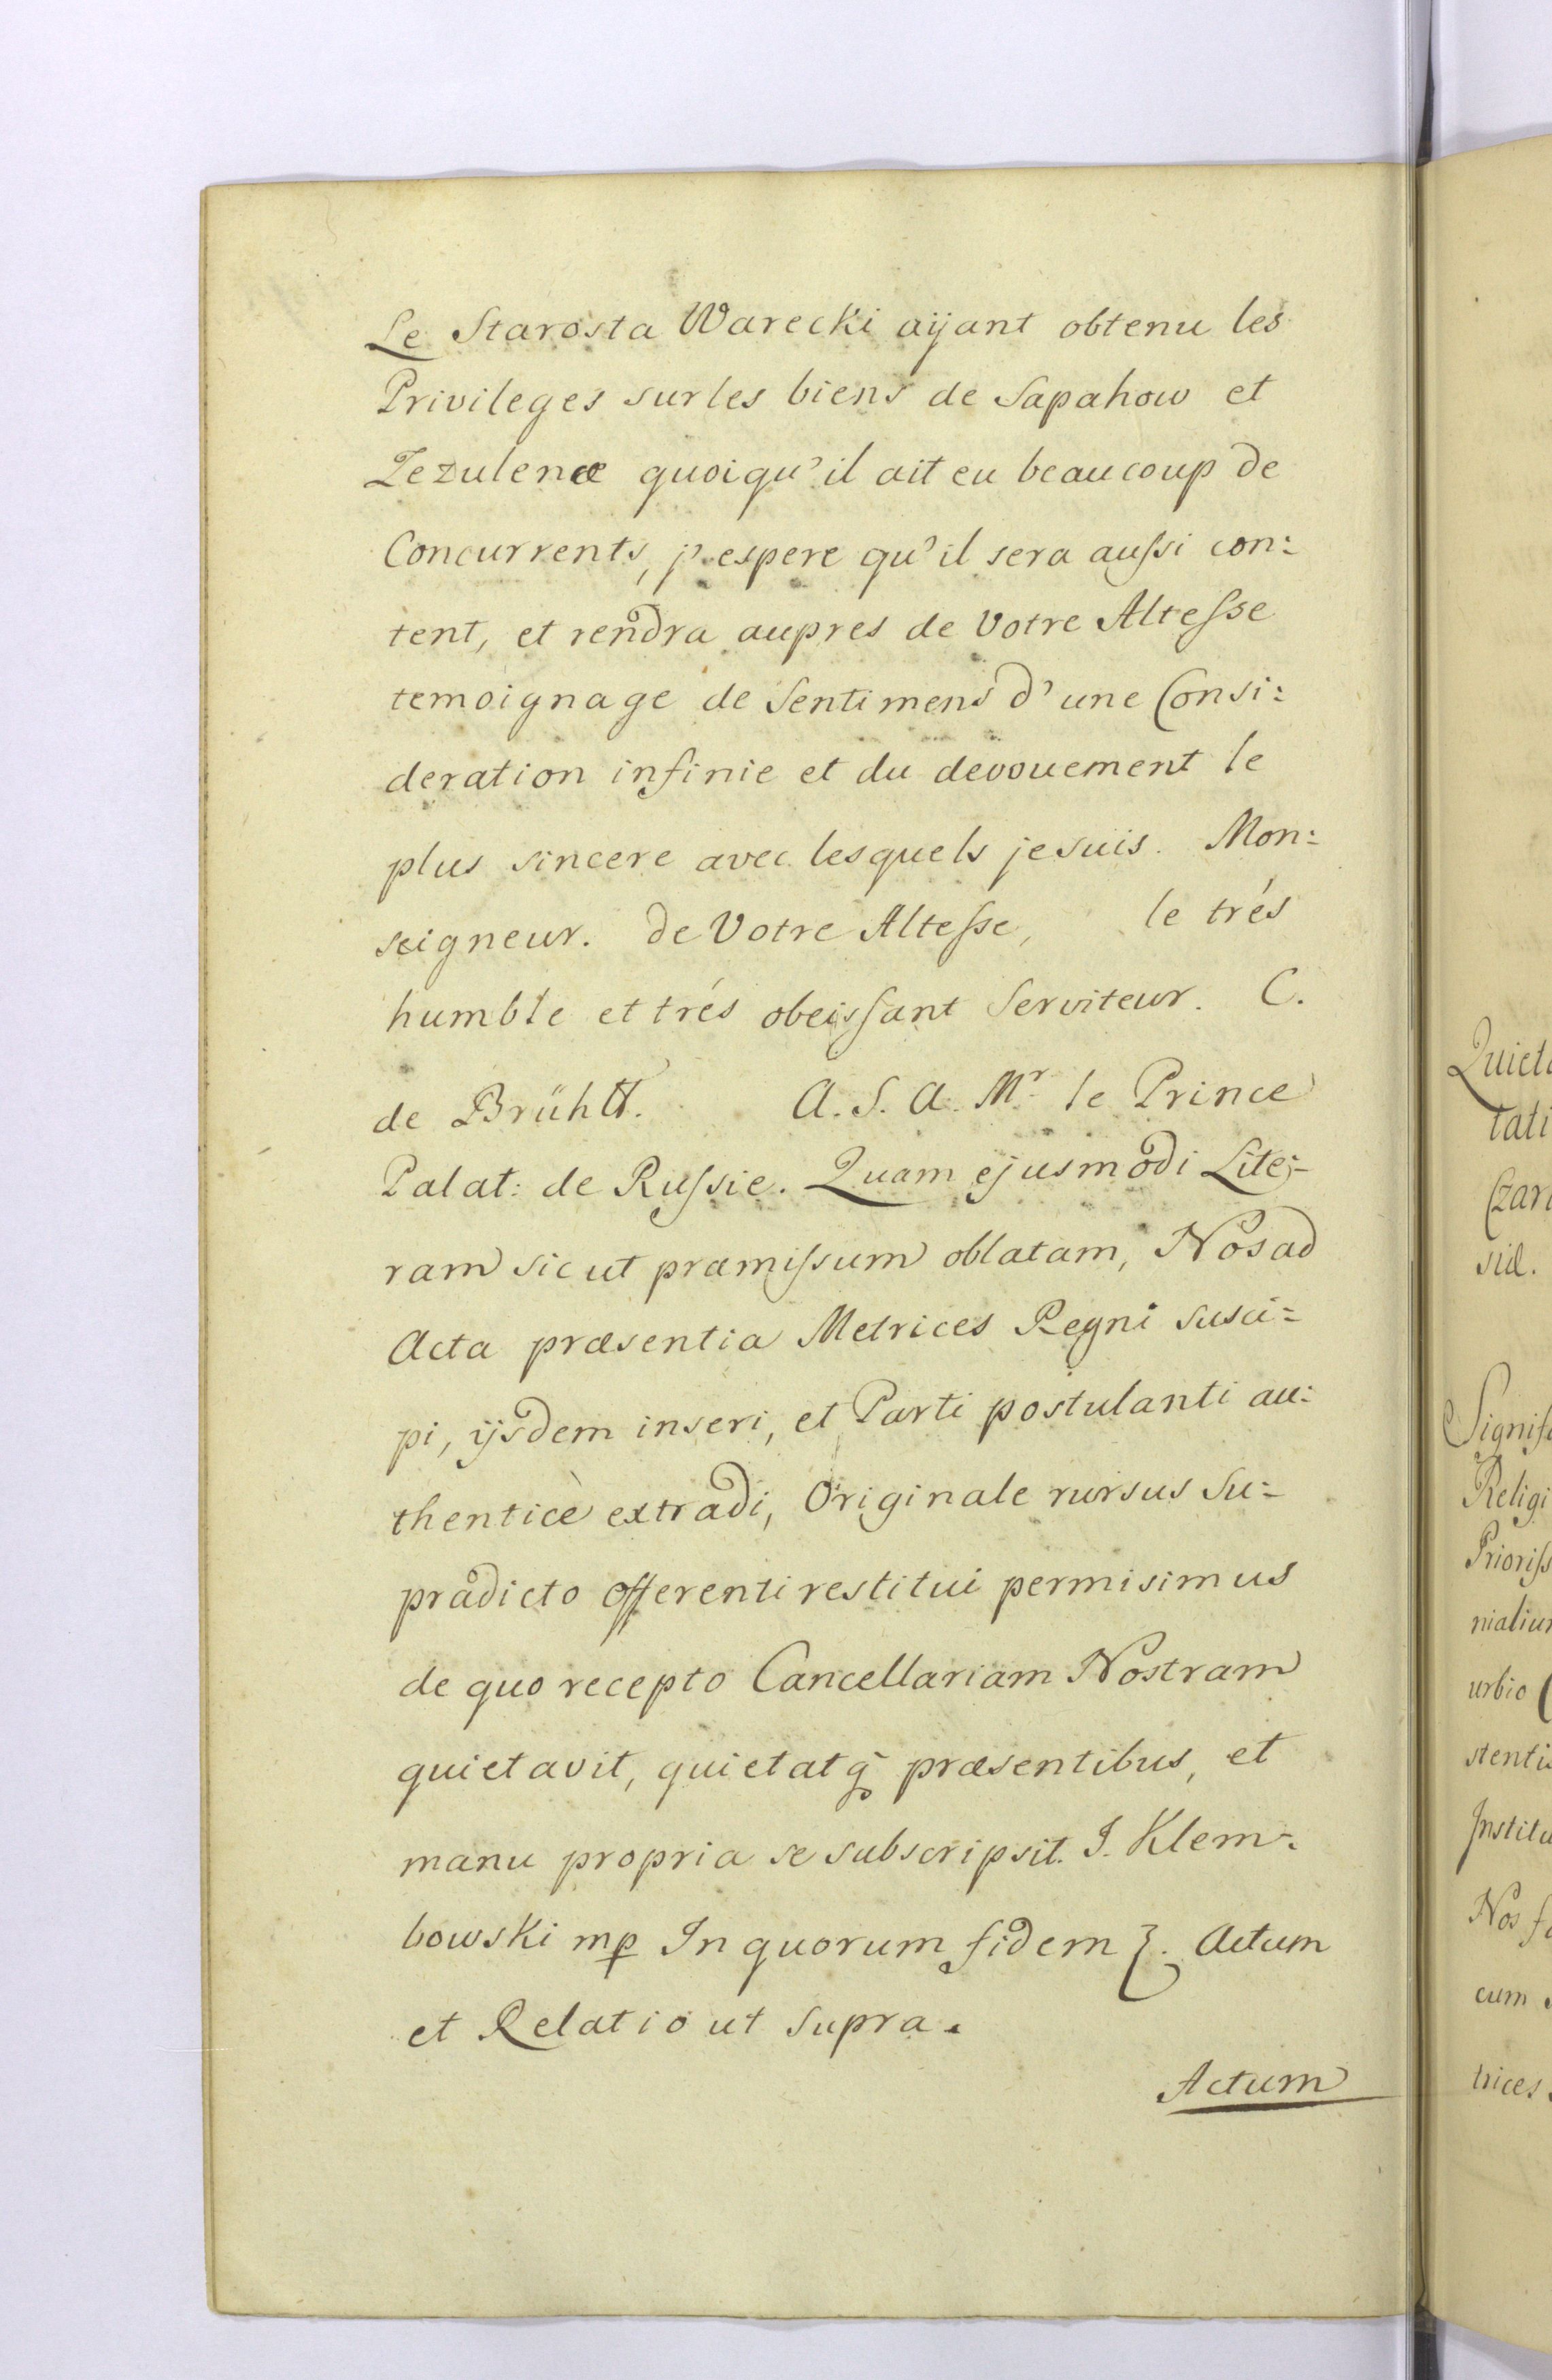 Le Starosta Warecki aÿant obtenu les
Privileges sur les biens de Sapahow et
Zezulenæ quoiqu'il ait eu beaucoup de
Concurrents, j'espere qu'il sera aussi con:
tent, et rendra aupres de Votre Altesse
temoignage de Sentimens d'une Consi:
deration infinie et du devouement le
plus sincere avec lesquels je suis. Mon:
seigneur. de Votre Altesse, le trés
humble et trés obeissant Serviteur. C.
de Brühll. A. S. A. Mr le Prince
Palat: de Russie. Quam ejusmodi Lite:
ram sic ut præmissum oblatam, Nos ad
Acta præsentia Metrices Regni susci:
pi, ijsdem inseri, et Parti postulanti au:
thenticè extradi, Originale rursus Su:
prådicto Offerenti restitui permisimus
de quo recepto Cancellariam Nostram
quietavit, quietatq præsentibus, et
manu propria se subscripsit. J. Klem:
bowski mp In quorum fidem ʒ. Actum
et Relatio ut supra.
Actum
Quiet
tati
Czar
siæ.
Signif
Religi
Prioriss
nialiu
urbio
stenti
Institu
Nos f
cum
trices